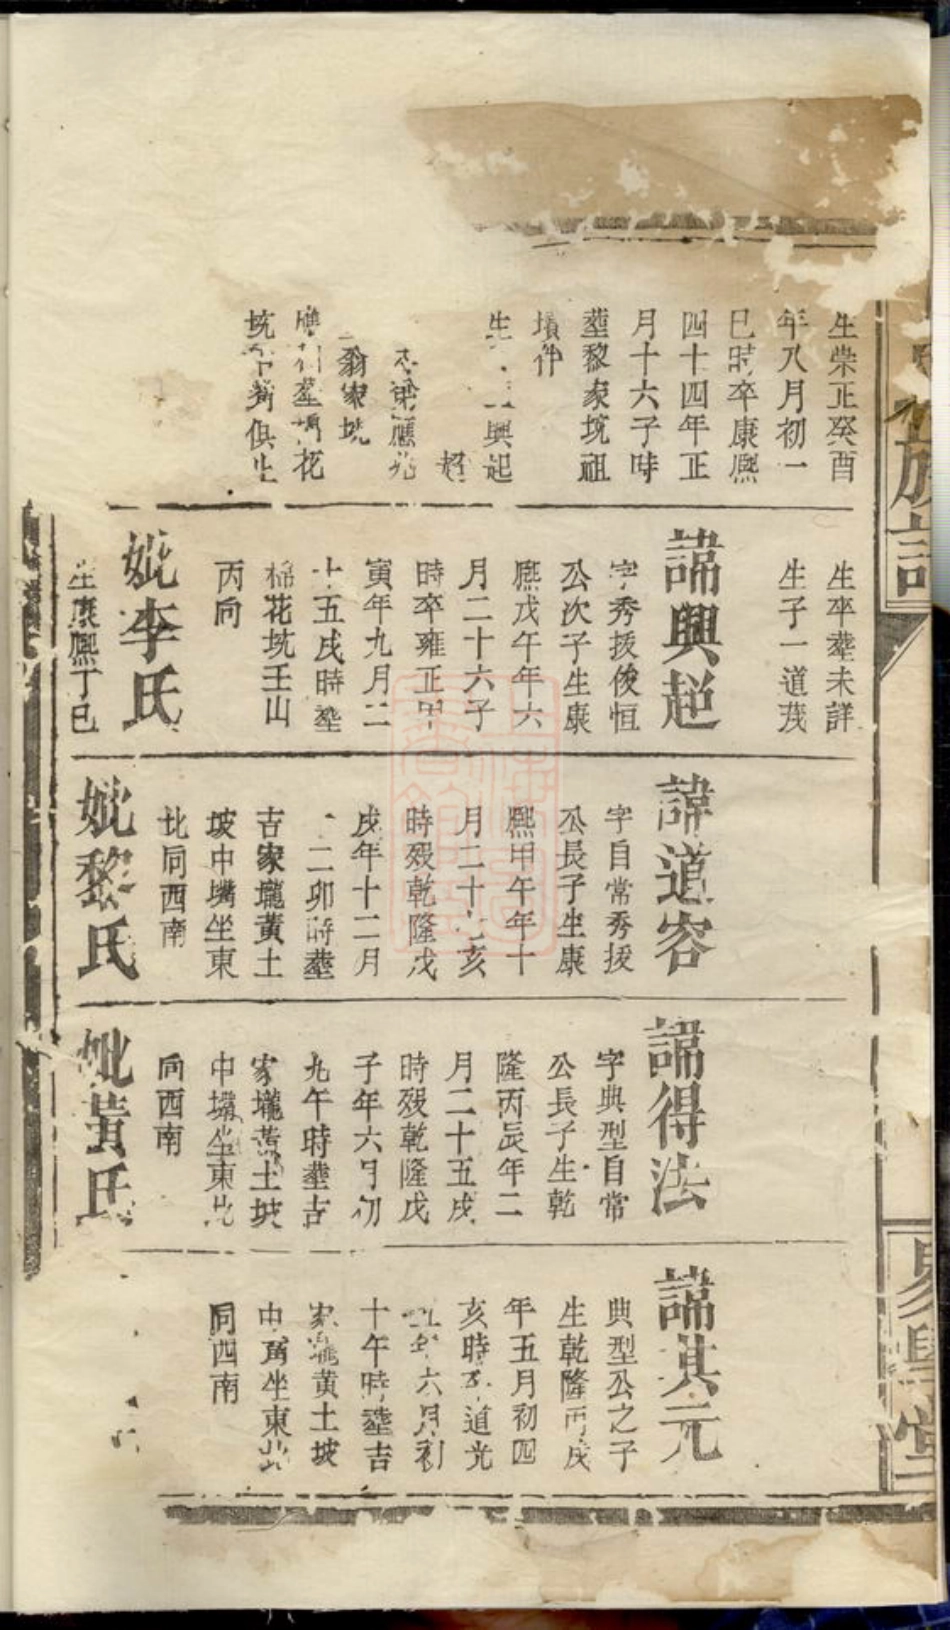 族譜
堂
生崇正癸酉
年八月初一
巳時卒康熈
四十四年正
月十六子時
塟黎家坑祖
墳
生 興起
超
弟應
翁家坑
塟 花
坑 俱
生卒塟未詳
生子一道茂
諱興超
字秀拔俊恒
公次子生康
熈戊午年六
月二十六子
時卒雍正甲
寅年九月二
十五戌時塟
棉花坑壬山
丙向
妣李氏
生康熈丁巳
諱道容
字自常秀拔
公長子生康
熈甲午年十
月二十七亥
時歿乾隆戊
戌年十二月
二卯時塟
吉家壠黃土
坡中嘴坐東
北向西南
妣黎氏
諱得法
字典型自常
公長子生乾
隆丙辰年二
月二十五戌
時歿乾隆戊
子年六月初
九午時塟吉
家壠黃土坡
中 坐東北
向西南
妣黃氏
諱其元
典型公之子
生乾隆丙戌
年五月初四
亥時 道光
年六月初
十午時塟吉
家壠黃土坡
中 坐東北
向西南